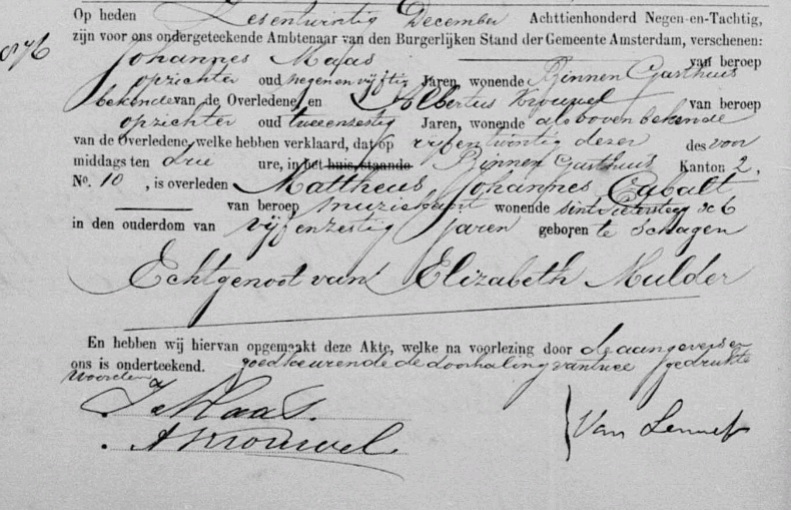 Op heden Zesentwintig December Achttienhonderd Negen-en-Tachtig,
zijn voor ons ondergeteekende Ambtenaar van den Burgerlijken Stand der Gemeente Amsterdam, verschenen:
Johannes Maas van beroep
opzichter oud negenenvijftig Jaren, wonende Binnen Gasthuis
bekende van de Overledene, en Albertus Krouwel van beroep
opzichter oud tweeenzestig Jaren, wonende als boven bekende
van de Overledene, welke hebben verklaard, dat op vijfentwintig dezer des voor
middags ten drie ure, in het huis, staande Binnen Gasthuis Kanton 2,
No. 10, is overleden Mattheus Johannes Cabalt
van beroep wonende
in den ouderdom van vijfenzestig Jaren geboren te Schagen
Echtgenoot van Elizabeth Mulder
En hebben wij hiervan opgemaakt deze Akte, welke na voorlezing door de aangevers en
ons is onderteekend. goedkeurende de doorhaling van twee gedrukte
woorden
Maas.
A Krouwel
Van Lennep